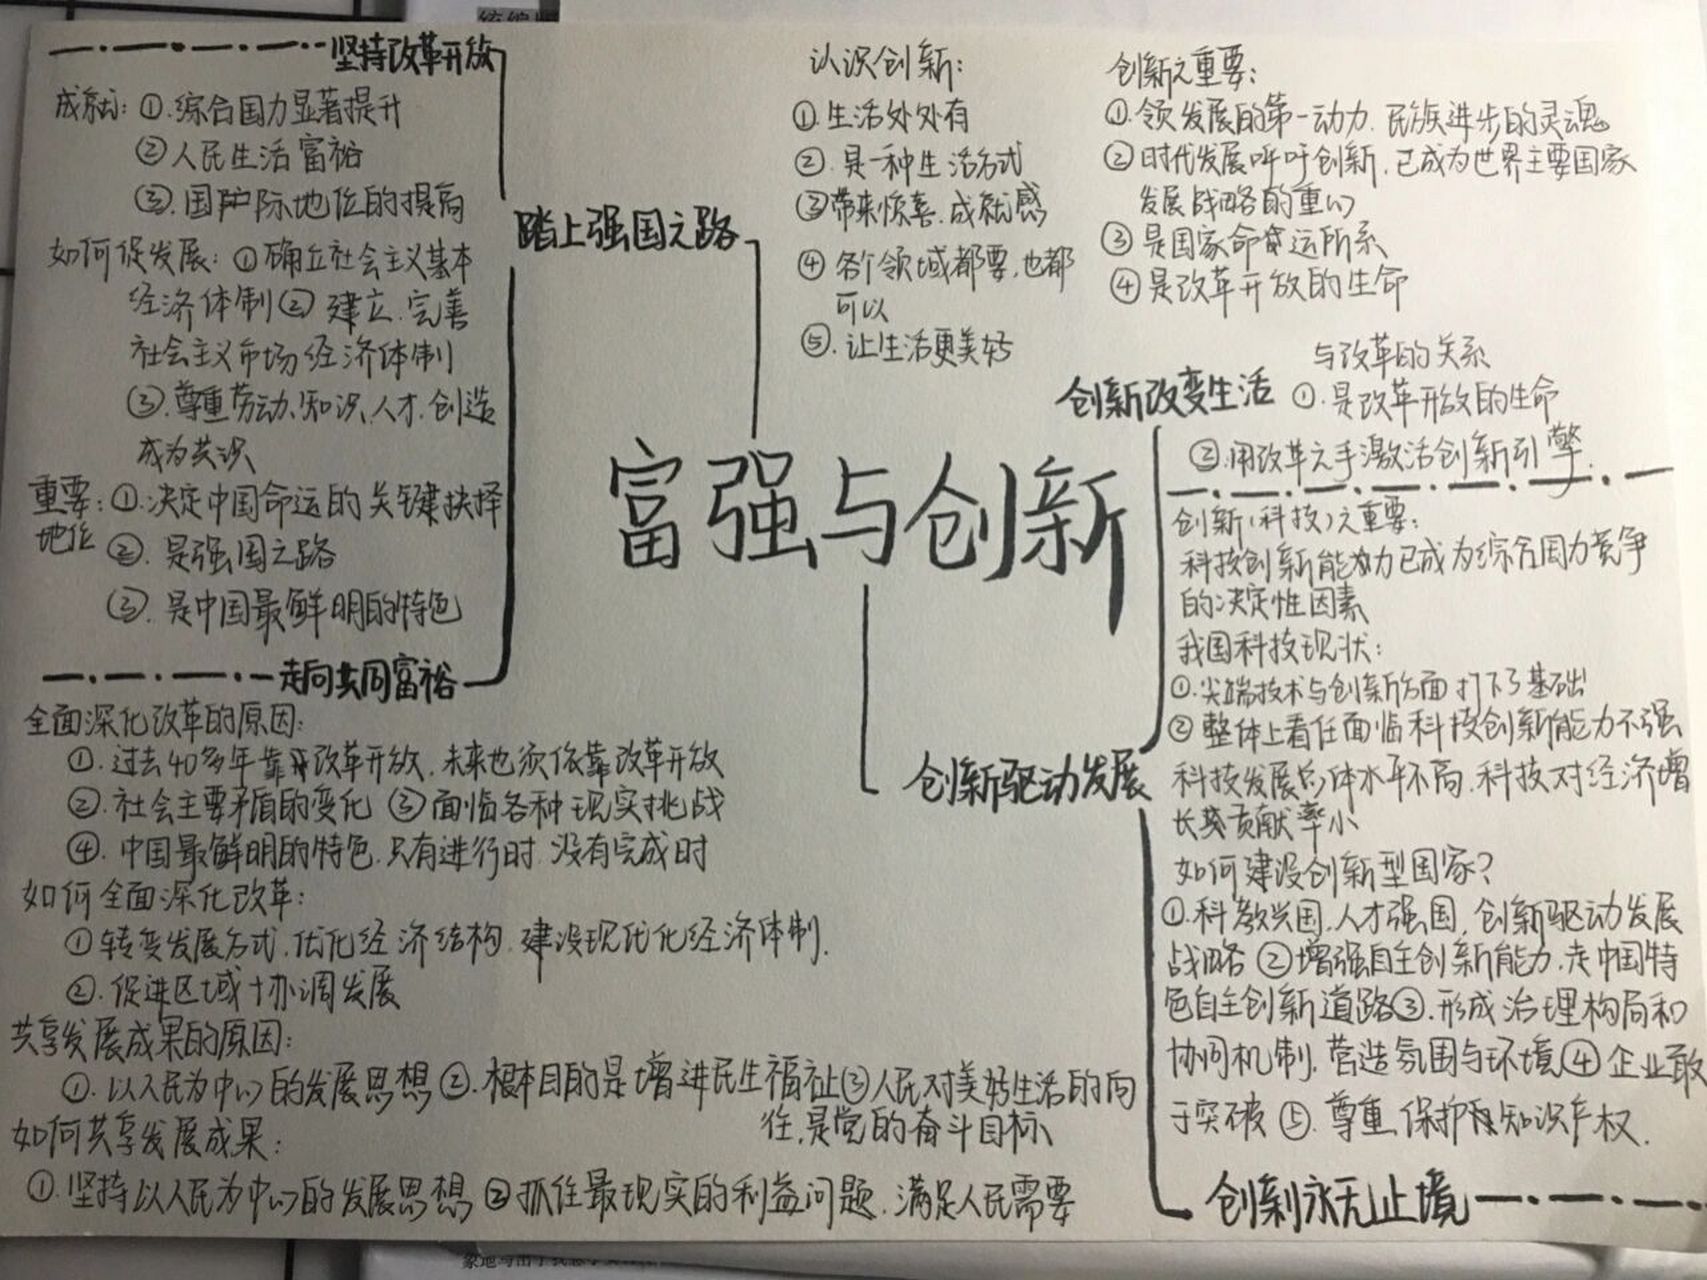 富强与创新
踏上强国之路
坚持改革开放
成就:①.综合国力显著提升
②人民生活富裕
③.国际地位的提高
如何促发展:①确立社会主义基本
经济体制②建立.完善
社会主义市场经济体制
③.尊重劳动、知识、人才.创造
成为共识
重要:①.决定中国命运的关键抉择
地位 ②.是强国之路
③.是中国最鲜明的特色
走向共同富裕
全面深化改革的原因:
①.过去40多年靠改革开放.未来也须依靠改革开放
②.社会主要矛盾的变化 ③面临各种现实挑战
④.中国最鲜明的特色.只有进行时.没有完成时
如何全面深化改革:
①转变发展方式.优化经济结构.建设现代化经济体制.
②.促进区域协调发展
共享发展成果的原因:
①.以人民为中心的发展思想②.根本目的是增进民生福祉③人民对美好生活的向
往,是党的奋斗目标、
如何共享发展成果:
①.坚持以人民为中心的发展思想 ②抓住最现实的利益问题.满足人民需要
创新驱动发展
创新改变生活
认识创新:
①.生活处处有
②.是一种生活方式
③带来惊喜.成就感
④各个领域都要,也都
可以
⑤.让生活更美好
创新之重要:
①.领发展的第一动力.民族进步的灵魂
②时代发展呼吁创新.已成为世界主要国家
发展战略的重心
③是国家命运所系
④是改革开放的生命
与改革的关系
①.是改革开放的生命
②.用改革之手激活创新引擎.
创新(科技)之重要:
科技创新能力已成为综合国力竞争
的决定性因素
我国科技现状:
①.尖端技术与创新方面打下了基础
②整体上看任面临科技创新能力不强
科技发展总体水平不高.科技对经济增
长贡献率小
如何建设创新型国家?
①.科教兴国.人才强国.创新驱动发展
战略②增强自主创新能力.走中国特
色自主创新道路③.形成治理构局和
协同机制.营造氛围与环境④企业敢
于突破⑤.尊重.保护知识产权.
创新永无止境